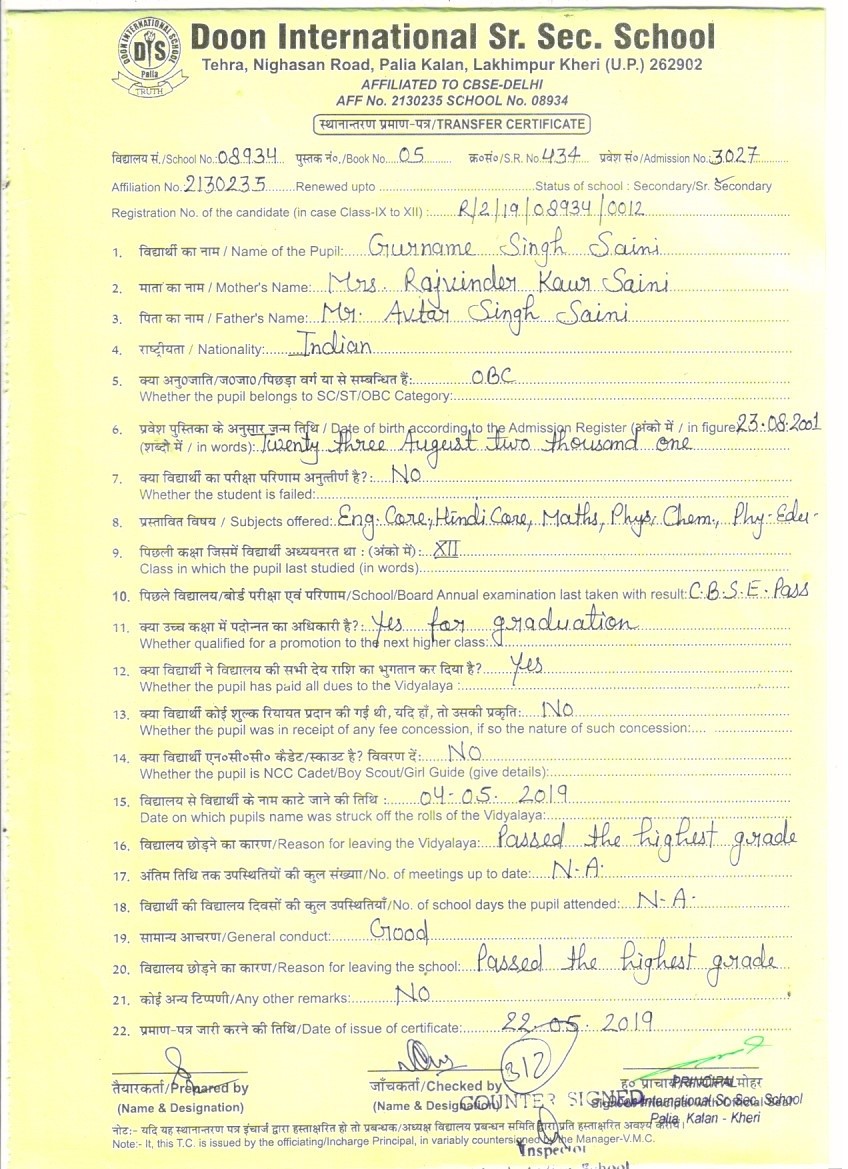 DOON INTERNATIONAL SCHOOL
DIS
Palia
TRUTH
Doon International Sr. Sec. School
Tehra, Nighasan Road, Palia Kalan, Lakhimpur Kheri (U.P.) 262902
AFFILIATED TO CBSE-DELHI
AFF No. 2130235 SCHOOL No. 08934
स्थानान्तरण प्रमाण-पत्र/TRANSFER CERTIFICATE
विद्यालय सं./School No.: 08934 पुस्तक नं०/Book No. 05 क्र०सं०/S.R. No. 434 प्रवेश सं०/Admission No. 3027
Affiliation No. 2130235 Renewed upto Status of school : Secondary/Sr. Secondary
Registration No. of the candidate (in case Class-IX to XII) : R/2/19/08934/0012
1. विद्यार्थी का नाम / Name of the Pupil: Gurname Singh Saini
2. माता का नाम / Mother's Name: Mrs. Rajvinder Kaur Saini
3. पिता का नाम / Father's Name: Mr. Avtar Singh Saini
4. राष्ट्रीयता / Nationality: Indian
5. क्या अनु०जाति/ज०जा०/पिछड़ा वर्ग या से सम्बन्धित हैः OBC
Whether the pupil belongs to SC/ST/OBC Category:
6. प्रवेश पुस्तिका के अनुसार जन्म तिथि / Date of birth according to the Admission Register (अंको में / in figure 23.08.2001
(शब्दों में / in words): Twenty three August two thousand one
7. क्या विद्यार्थी का परीक्षा परिणाम अनुत्तीर्ण है?: No
Whether the student is failed:
8. प्रस्तावित विषय / Subjects offered: Eng. Core, Hindi Core, Maths, Phys, Chem., Phy-Edu-
9. पिछली कक्षा जिसमें विद्यार्थी अध्ययनरत था : (अंको में): XII
Class in which the pupil last studied (in words)
10. पिछले विद्यालय/बोर्ड परीक्षा एवं परिणाम/School/Board Annual examination last taken with result: C.B.S.E. Pass
11. क्या उच्च कक्षा में पदोन्नत का अधिकारी है?: Yes for graduation
Whether qualified for a promotion to the next higher class:
12. क्या विद्यार्थी ने विद्यालय की सभी देय राशि का भुगतान कर दिया है? Yes
Whether the pupil has paid all dues to the Vidyalaya :
13. क्या विद्यार्थी कोई शुल्क रियायत प्रदान की गई थी, यदि हाँ, तो उसकी प्रकृति: No
Whether the pupil was in receipt of any fee concession, if so the nature of such concession:
14. क्या विद्यार्थी एन०सी०सी० कैडेट/स्काउट है? विवरण दें: No
Whether the pupil is NCC Cadet/Boy Scout/Girl Guide (give details):
15. विद्यालय से विद्यार्थी के नाम काटे जाने की तिथि : 04-05. 2019
Date on which pupils name was struck off the rolls of the Vidyalaya:
16. विद्यालय छोड़ने का कारण/Reason for leaving the Vidyalaya: Passed the highest grade
17. अंतिम तिथि तक उपस्थितियों की कुल संख्या/No. of meetings up to date: N.A.
18. विद्यार्थी की विद्यालय दिवसों की कुल उपस्थितियाँ/No. of school days the pupil attended: N.A.
19. सामान्य आचरण/General conduct: Good
20. विद्यालय छोड़ने का कारण/Reason for leaving the school: Passed the highest grade
21. कोई अन्य टिप्पणी/Any other remarks: No
22. प्रमाण-पत्र जारी करने की तिथि/Date of issue of certificate: 22.05. 2019
312
तैयारकर्ता/Prepared by जाँचकर्ता/Checked by ह० प्राचार्य मोहर
PRINCIPAL
(Name & Designation) (Name & Designation)
COUNTER SIGNED
Doon International Sr. Sec. School
Palia, Kalan - Kheri
नोट:- यदि यह स्थानान्तरण पत्र इंचार्ज द्वारा हस्ताक्षरित हो तो प्रबन्धक/अध्यक्ष विद्यालय प्रबन्धन समिति द्वारा प्रति हस्ताक्षरित अवश्य
Note:- It, this T.C. is issued by the officiating/Incharge Principal, in variably countersigned by the Manager-V.M.C.
Inspector